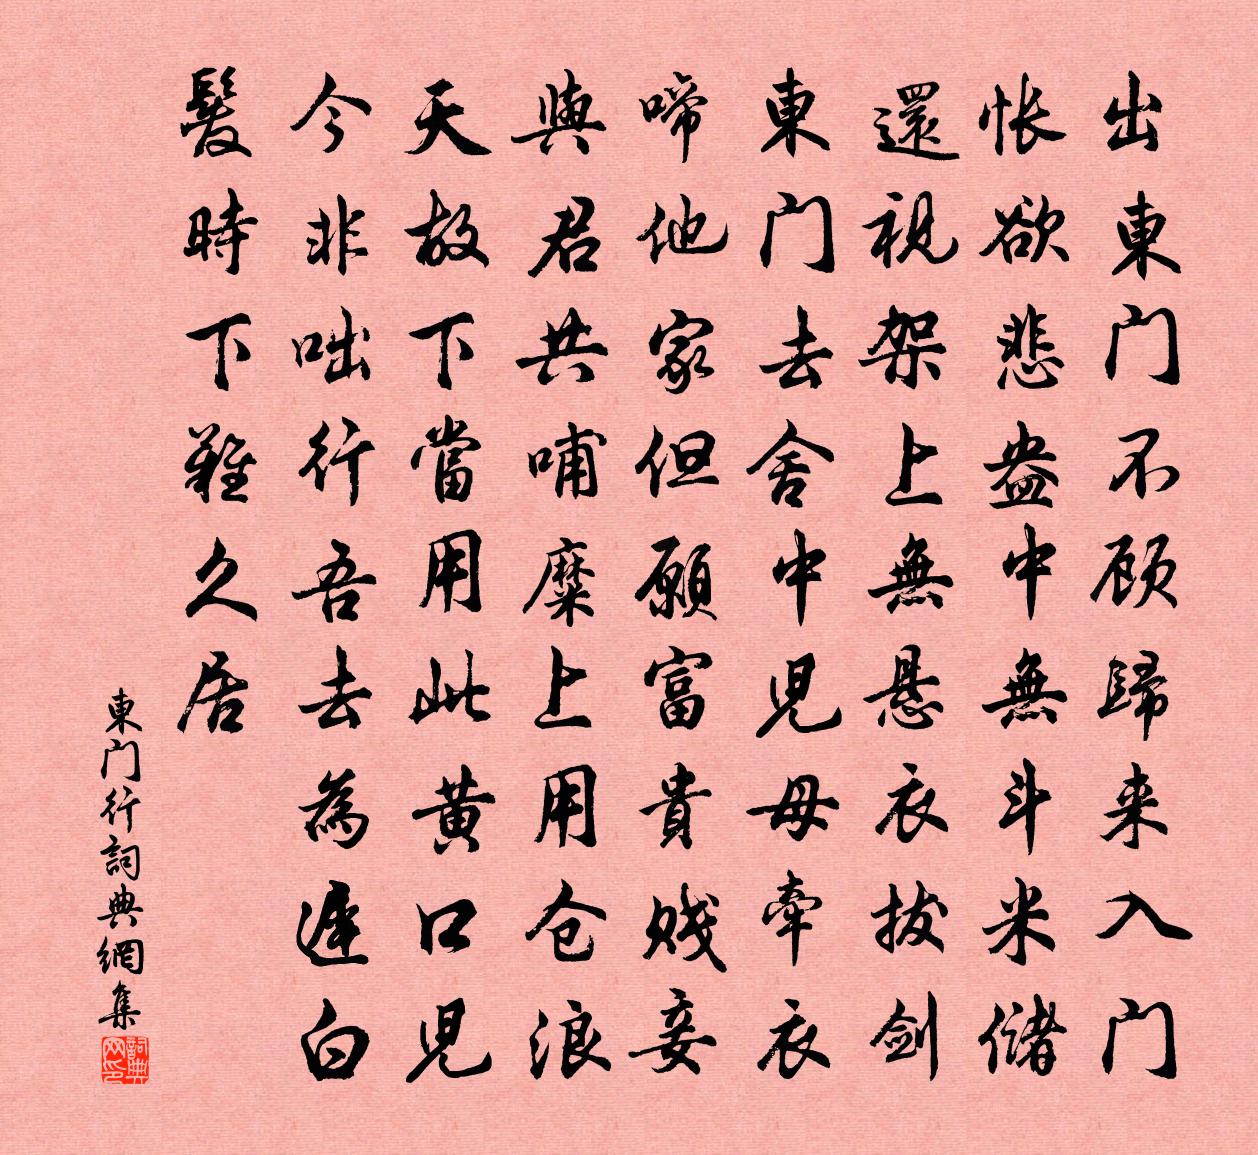 出東门不顾歸来入门
怅欲悲盎中無斗米储
還視架上無悬衣拔剑
東门去舍中児母牵衣
啼他家但願富貴贱妾
與君共哺糜上用仓浪
天故下當用此黄口児
今非咄行吾去為遲白
髮時下難久居
東门行詞典網集
詞典网印